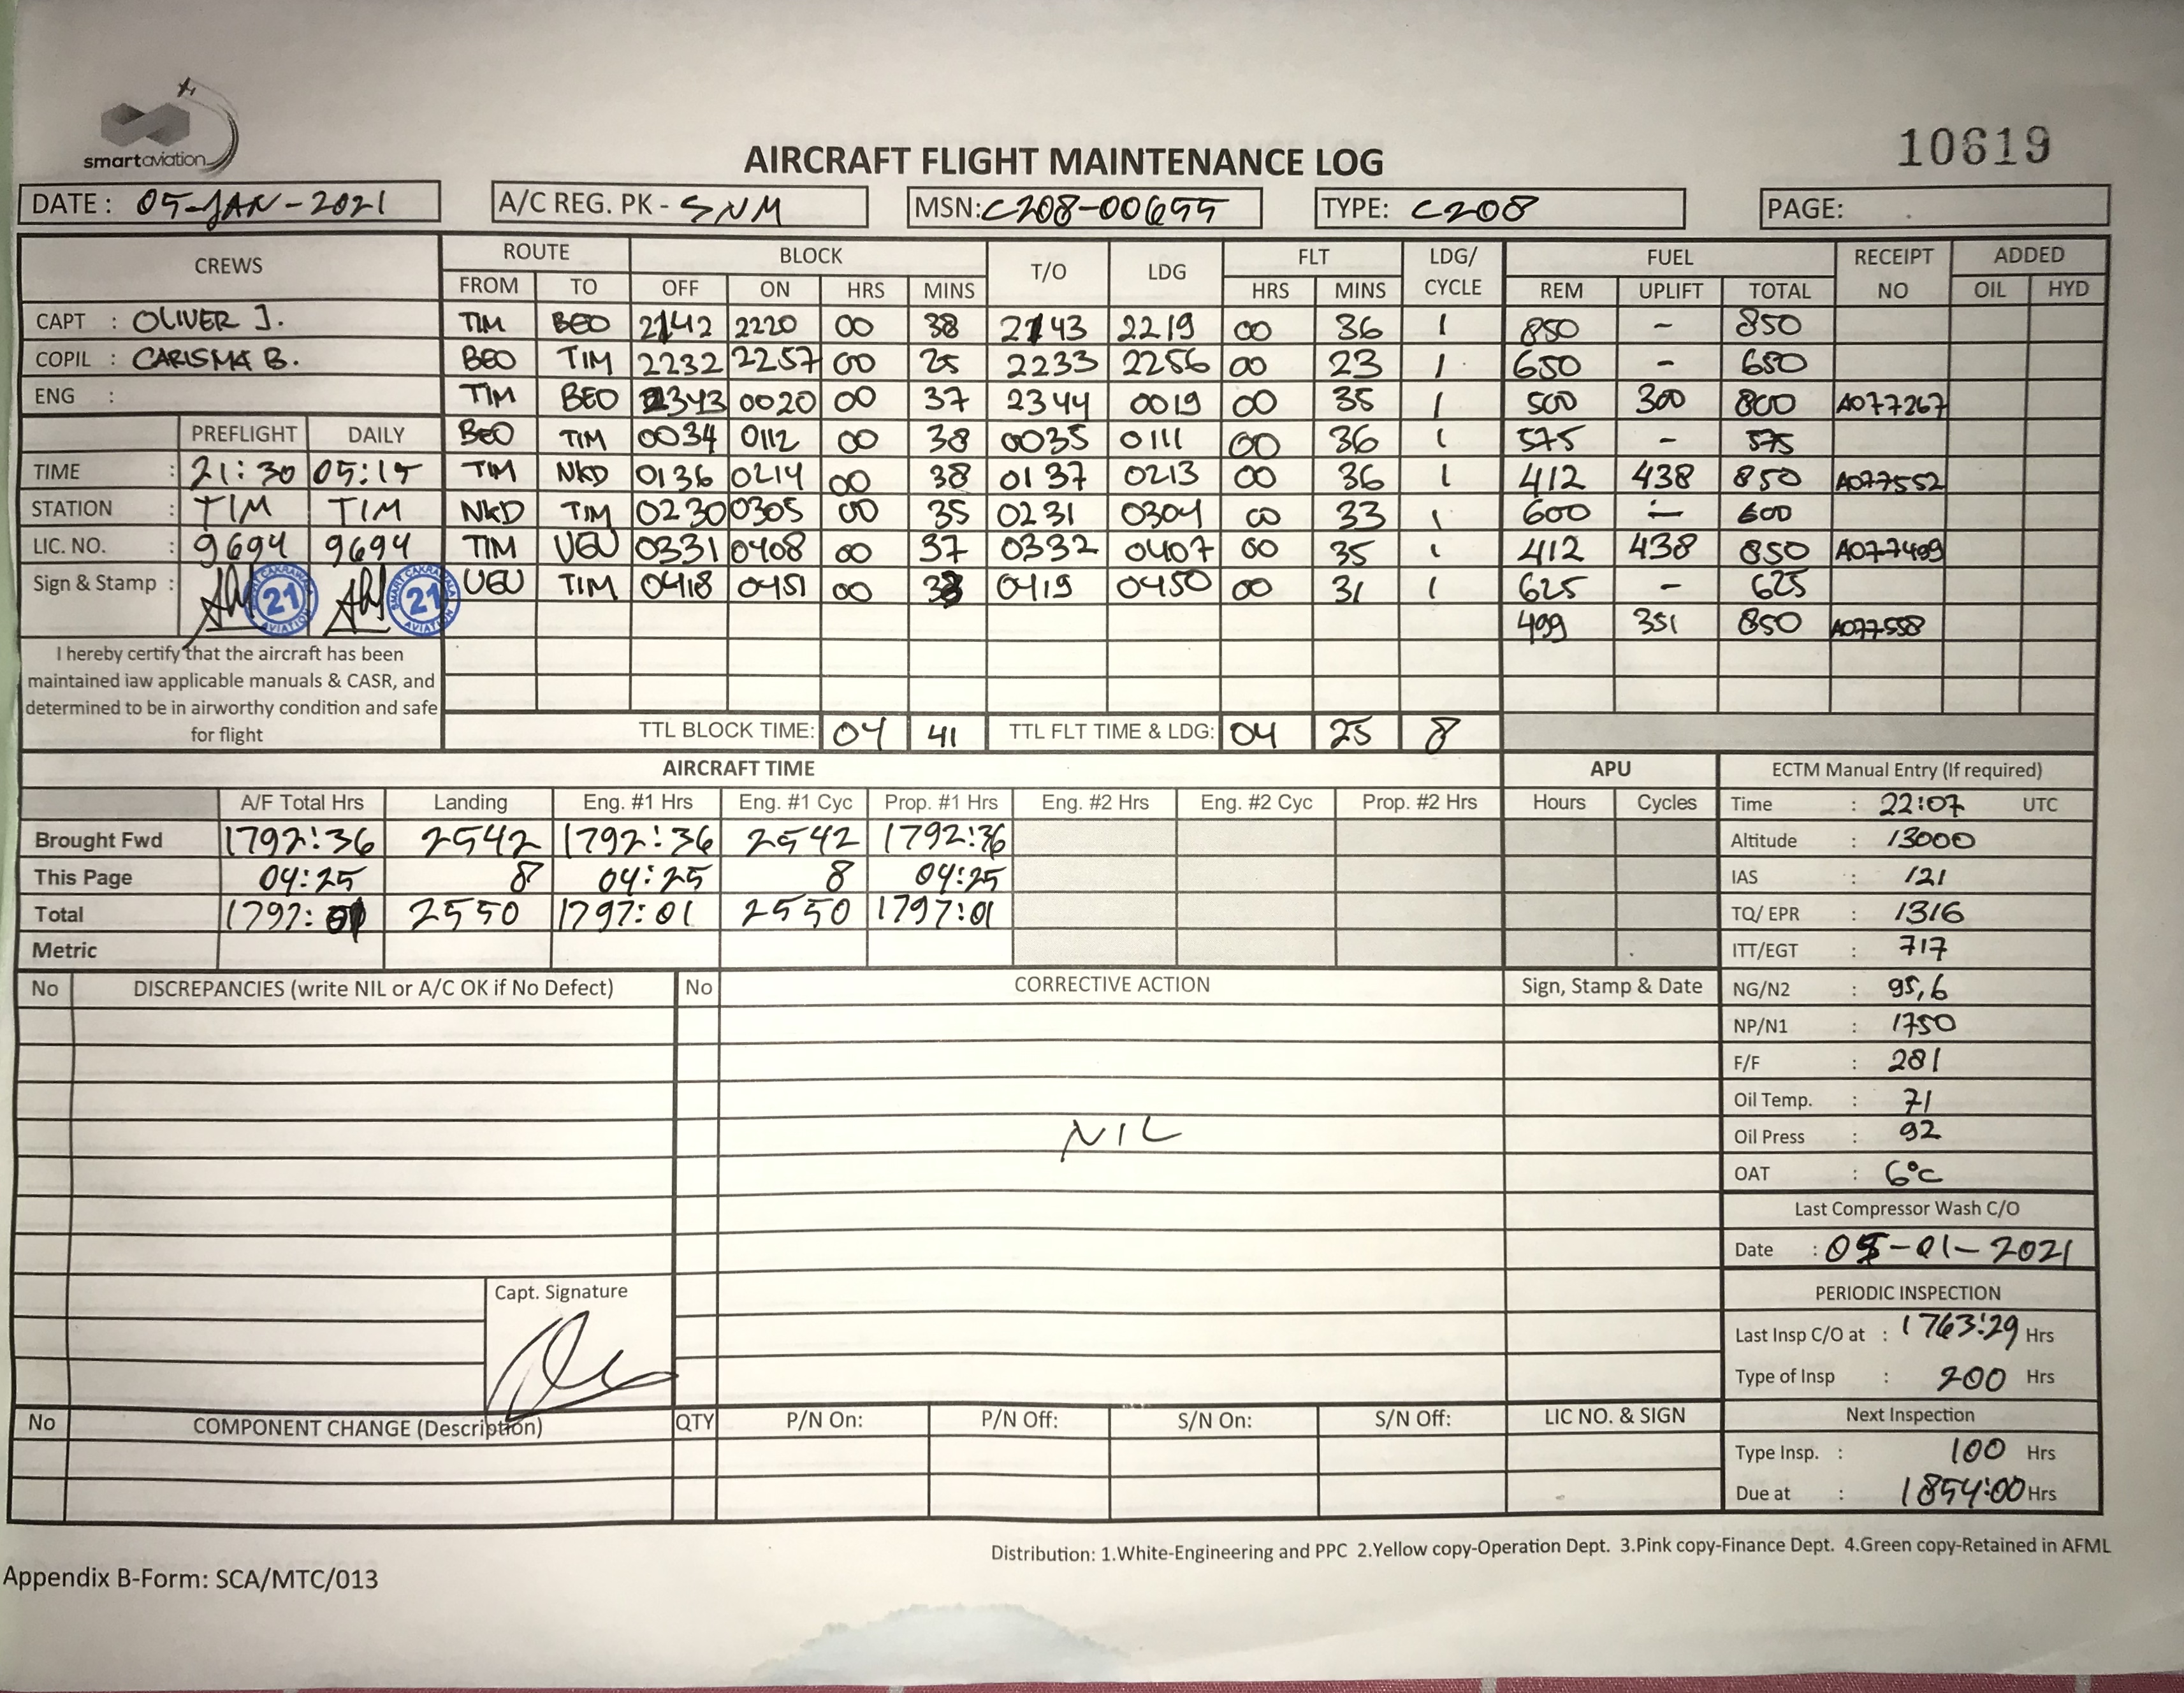 smartaviation
AIRCRAFT FLIGHT MAINTENANCE LOG
10619
DATE : 05-JAN-2021 A/C REG. PK - SNM MSN: C208-00655 TYPE: C208 PAGE:
CREWS ROUTE BLOCK T/O LDG FLT LDG/ CYCLE FUEL RECEIPT NO ADDED
FROM TO OFF ON HRS MINS HRS MINS REM UPLIFT TOTAL OIL HYD
CAPT : OLIVER J. TIM BEO 2142 2220 00 38 2143 2219 00 36 1 850 - 850
COPIL : CARISMA B. BEO TIM 2232 2257 00 25 2233 2256 00 23 1 650 - 650
ENG : TIM BEO 2343 0020 00 37 2344 0019 00 35 1 500 300 800 A077267
PREFLIGHT DAILY BEO TIM 0034 0112 00 38 0035 0111 00 36 1 575 - 575
TIME : 21:30 05:15 TIM NKD 0136 0214 00 38 0137 0213 00 36 1 412 438 850 A077552
STATION : TIM TIM NKD TIM 0230 0305 00 35 0231 0304 00 33 1 600 - 600
LIC. NO. : 9694 9694 TIM UGU 0331 0408 00 37 0332 0407 00 35 1 412 438 850 A077499
Sign & Stamp : 21 21 UGU TIM 0418 0451 00 33 0419 0450 00 31 1 625 - 625
499 351 850 A077558
I hereby certify that the aircraft has been
maintained iaw applicable manuals & CASR, and
determined to be in airworthy condition and safe
for flight
TTL BLOCK TIME: 04 41 TTL FLT TIME & LDG: 04 25 8
AIRCRAFT TIME APU ECTM Manual Entry (If required)
A/F Total Hrs Landing Eng. #1 Hrs Eng. #1 Cyc Prop. #1 Hrs Eng. #2 Hrs Eng. #2 Cyc Prop. #2 Hrs Hours Cycles Time : 22:07 UTC
Brought Fwd 1792:36 2542 1792:36 2542 1792:36 Altitude : 13000
This Page 04:25 8 04:25 8 04:25 IAS : 121
Total 1797:01 2550 1797:01 2550 1797:01 TQ/ EPR : 1316
Metric ITT/EGT : 717
No DISCREPANCIES (write NIL or A/C OK if No Defect) No CORRECTIVE ACTION Sign, Stamp & Date NG/N2 : 95,6
NP/N1 : 1750
F/F : 281
Oil Temp. : 71
NIL Oil Press : 92
OAT : 6°C
Last Compressor Wash C/O
Date : 05-01-2021
Capt. Signature PERIODIC INSPECTION
Last Insp C/O at : 1763:29 Hrs
Type of Insp : 200 Hrs
No COMPONENT CHANGE (Description) QTY P/N On: P/N Off: S/N On: S/N Off: LIC NO. & SIGN Next Inspection
Type Insp. : 100 Hrs
Due at : 1854:00 Hrs
Distribution: 1.White-Engineering and PPC 2.Yellow copy-Operation Dept. 3.Pink copy-Finance Dept. 4.Green copy-Retained in AFML
Appendix B-Form: SCA/MTC/013